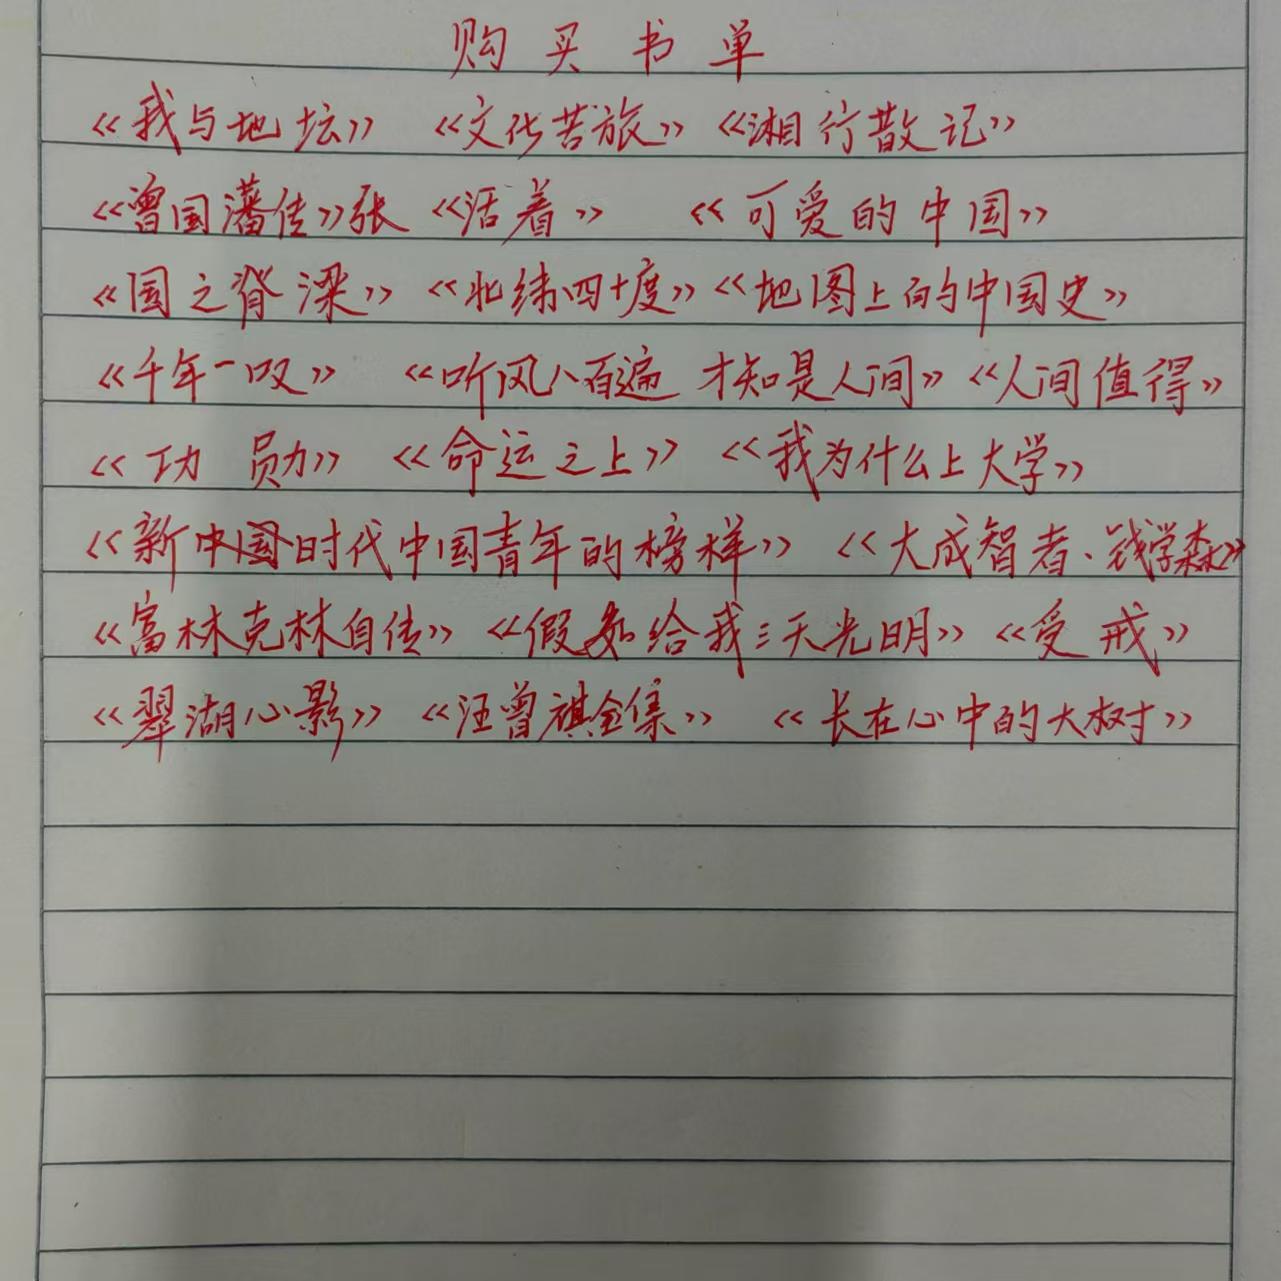 购买书单
《我与地坛》 《文化苦旅》 《湘行散记》
《曾国藩传》张 《活着》 《可爱的中国》
《国之脊梁》 《北纬四十度》 《地图上的中国史》
《千年一叹》 《听风八百遍 才知是人间》 《人间值得》
《功勋》 《命运之上》 《我为什么上大学》
《新中国时代中国青年的榜样》 《大成智者·钱学森》
《富林克林自传》 《假如给我三天光明》 《受戒》
《翠湖心影》 《汪曾祺全集》 《长在心中的大树》